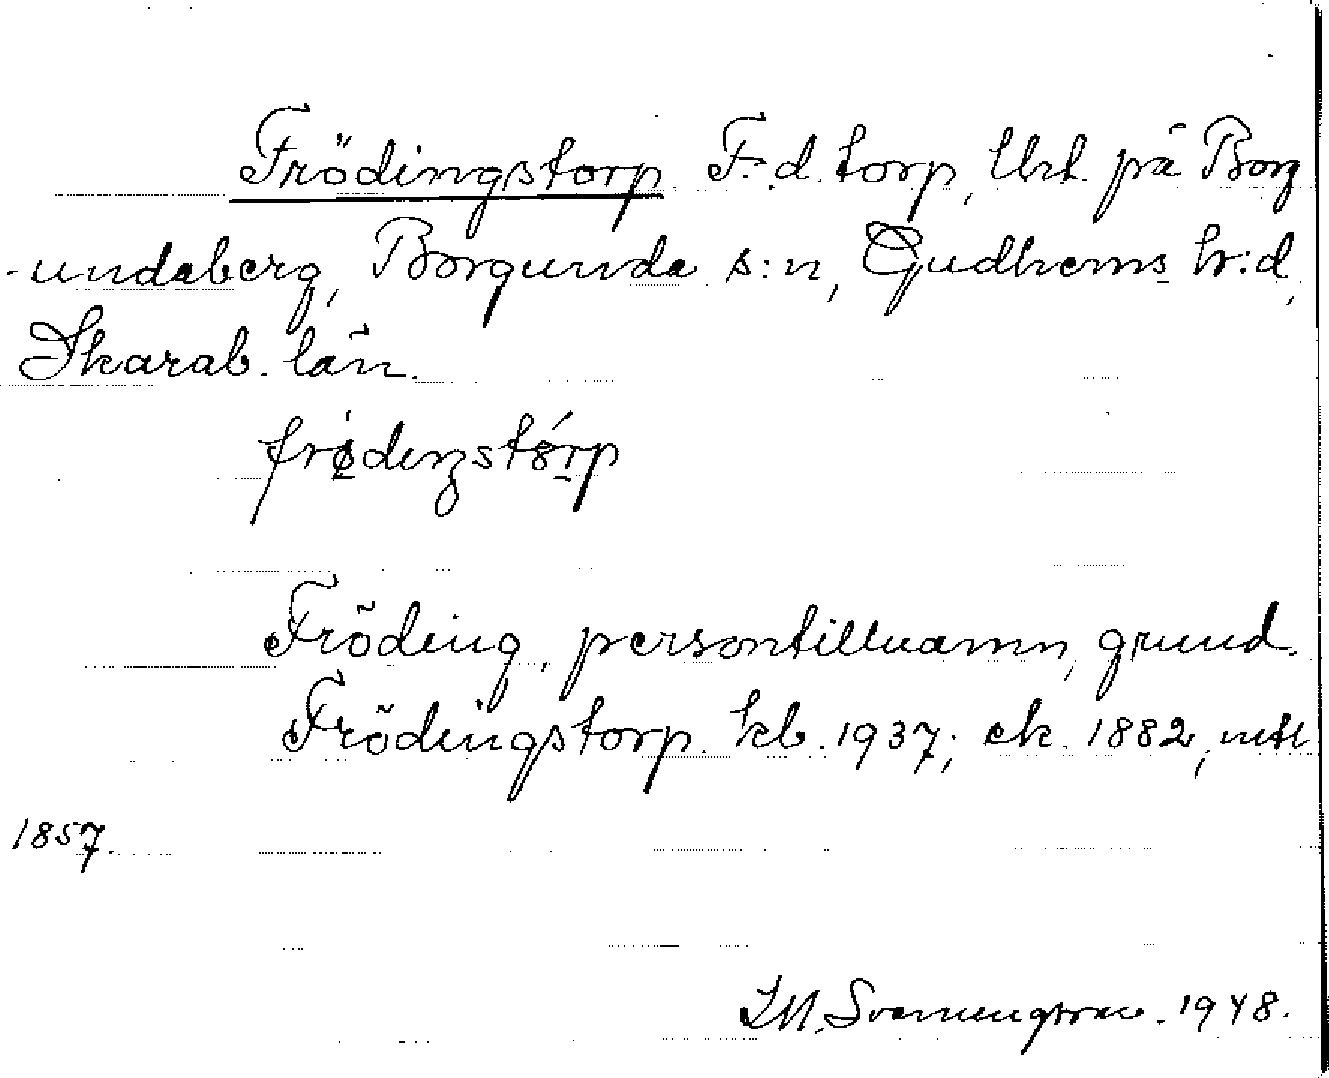 Frödingstorp F.d. torp, lht. på Borg
-undaberg, Borgunda s:n, Gudhems h:d,
Skarab. län.
frǿdeŋstórp
Fröding, persontillnamn, grund.
Frödingstorp kb. 1937; ek 1882,
1857.
1948.